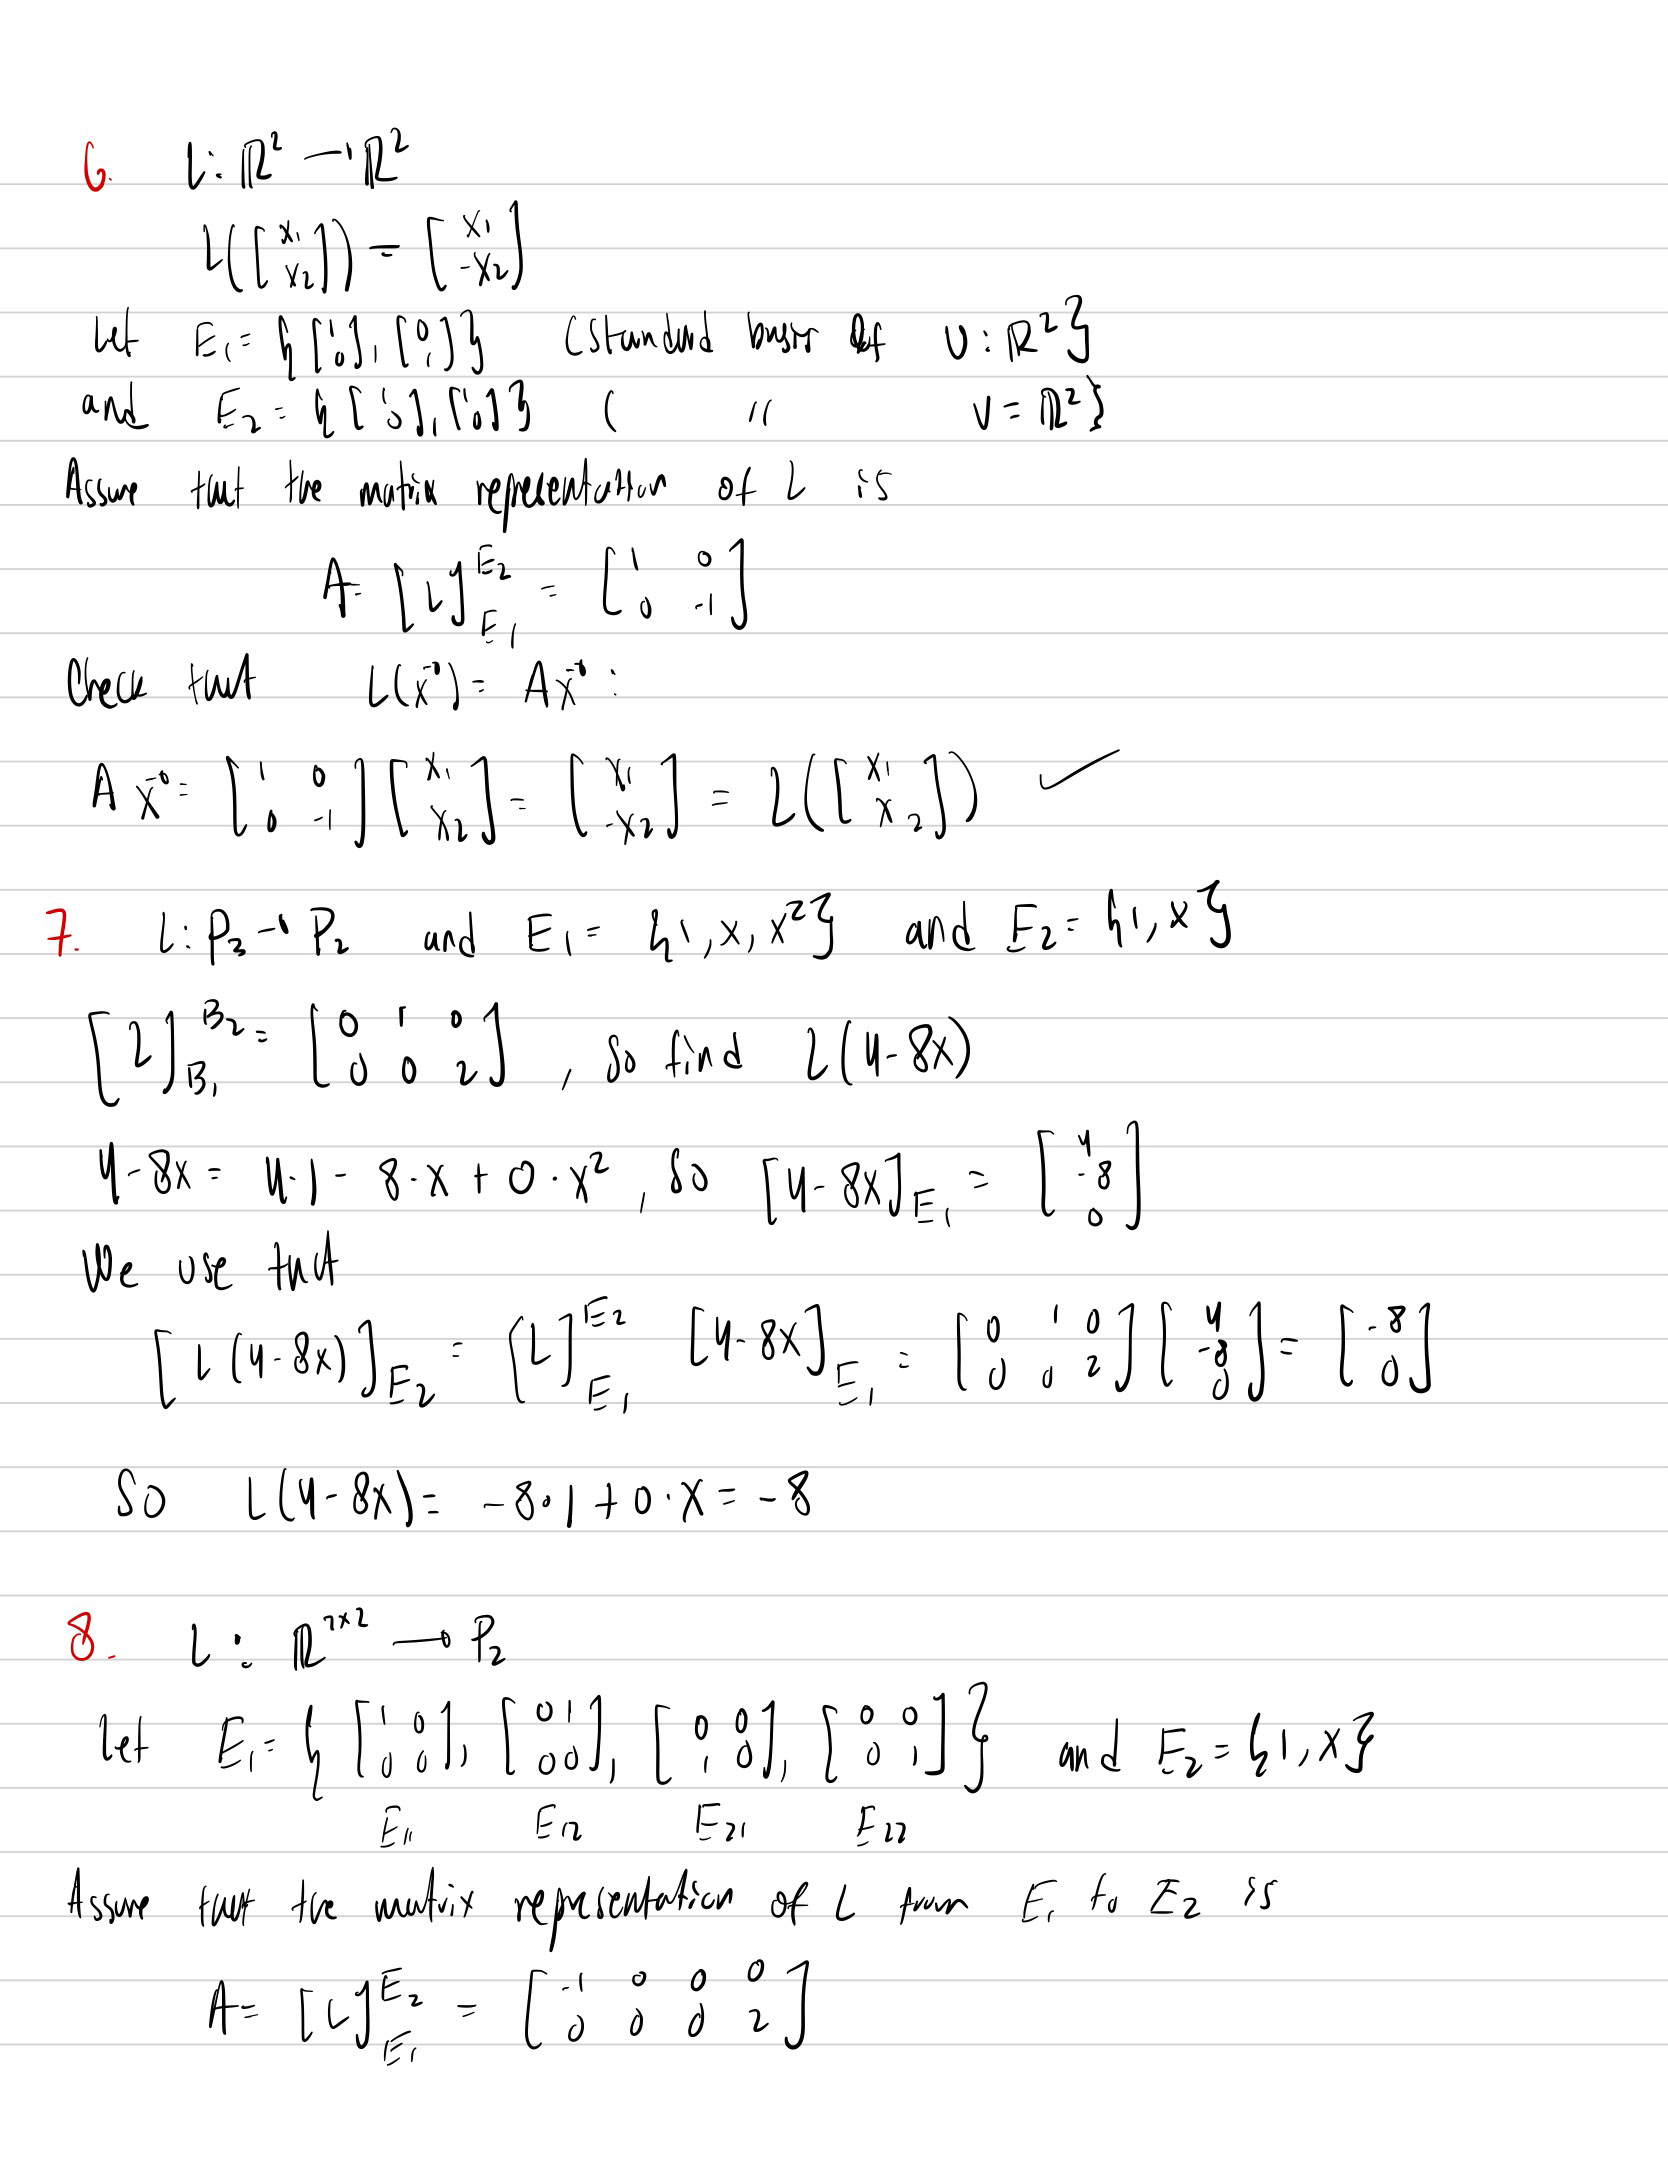 6. L: ℝ² → ℝ²
L([x₁ x₂]) = [x₁ -x₂]
Let E₁ = {[1 0], [0 1]} (Standard basis of U: ℝ²}
and E₂ = {[1 0], [1 0]} ( " V = ℝ²}
Assume that the matrix representation of L is
A = [L]_E₁^E₂ = [1 0; 0 -1]
Check that L(x⃗) = Ax⃗ :
A x⃗ = [1 0; 0 -1] [x₁ x₂] = [x₁ -x₂] = L([x₁ x₂]) ✓
7. L: P₃ → P₂ and E₁ = {1, x, x²} and E₂ = {1, x}
[L]_B₁^B₂ = [0 1 0; 0 0 2], so find L(4-8x)
4-8x = 4·1 - 8·x + 0·x², so [4-8x]_E₁ = [4 -8 0]
We use that
[L(4-8x)]_E₂ = [L]_E₁^E₂ [4-8x]_E₁ = [0 1 0; 0 0 2] [4 -8 0] = [-8 0]
So L(4-8x) = -8·1 + 0·x = -8
8. L: ℝ²ˣ² → P₂
let E₁ = {[1 0; 0 0], [0 1; 0 0], [0 0; 1 0], [0 0; 0 1]} and E₂ = {1, x}
E₁₁ E₁₂ E₂₁ E₂₂
Assume that the matrix representation of L from E₁ to E₂ is
A = [L]_E₁^E₂ = [-1 0 0 0; 0 0 0 2]